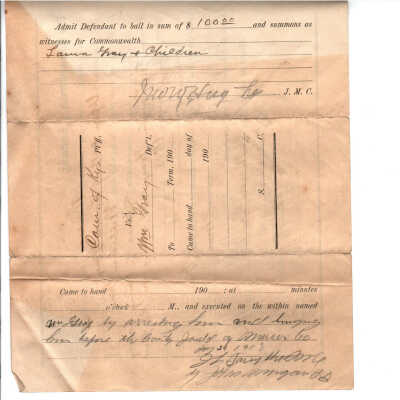 Admit Defendant to bail in sum of $ 100 00 and summons as
witnesses for Commonwealth
Laura Gray & Children
J. M. C.
Com of Ky. Plff.
Vs.
Wm Gray Deft.
To Term, 190
Came to hand day of
190
S. C.
Came to hand 190 : at minutes
o'clock M., and executed on the within named
Wm Gray by arresting him and bringing
him before the County Judge of Mercer Co
190